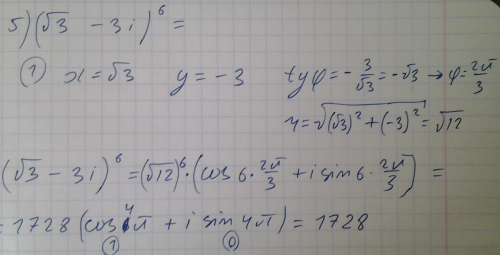 5) (√3 - 3i)^6 =
① x = √3 y = -3 tgφ = - 3/√3 = -√3 → φ = 2π/3
r = √((√3)^2 + (-3)^2) = √12
(√3 - 3i)^6 = (√12)^6 · (cos 6 · 2π/3 + i sin 6 · 2π/3) =
= 1728 (cos 4π + i sin 4π) = 1728
① ⓪